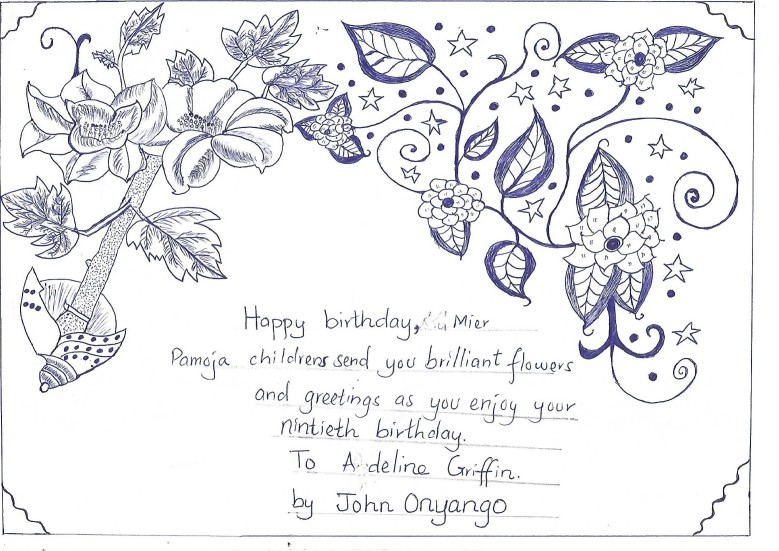 Happy birthday, Mier
Pamoja childrens send you brilliant flowers
and greetings as you enjoy your
nintieth birthday.
To Adeline Griffin.
by John Onyango